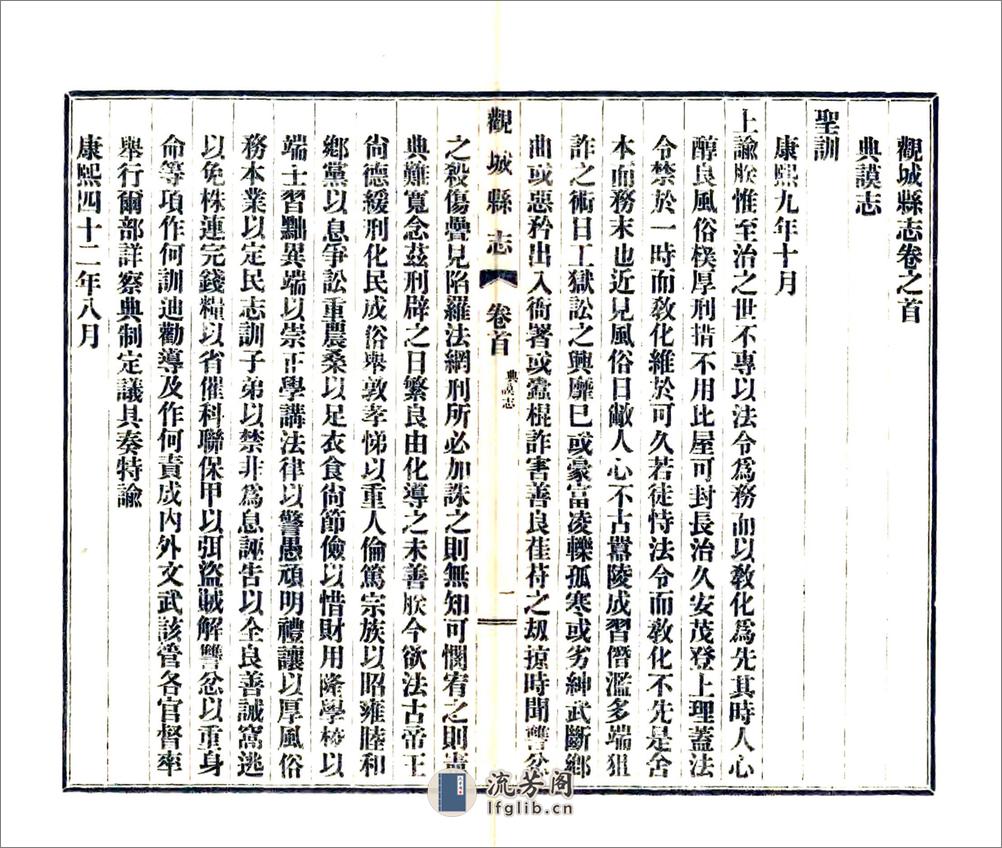 觀城縣志卷之首
典謨志
聖訓
康熙九年十月
上諭朕惟至治之世不專以法令爲務而以敎化爲先其時人心
醇良風俗樸厚刑措不用比屋可封長治久安茂登上理蓋法
令禁於一時而敎化維於可久若徒恃法令而敎化不先是舍
本而務末也近見風俗日敝人心不古囂陵成習僭濫多端狙
詐之術日工獄訟之興靡已或豪富凌轢孤寒或劣紳武斷鄉
曲或惡矜出入衙署或蠹棍詐害善良萑苻之刼掠時聞讐忿
觀城縣志
卷首
典謨志
一
之殺傷疊見陷羅法網刑所必加誅之則無知可憫宥之則
典難寬念茲刑辟之日繁良由化導之未善朕今欲法古帝王
尙德緩刑化民成俗舉敦孝悌以重人倫篤宗族以昭雍睦和
鄉黨以息爭訟重農桑以足衣食尙節儉以惜財用隆學校以
端士習黜異端以崇正學講法律以警愚頑明禮讓以厚風俗
務本業以定民志訓子弟以禁非爲息誣吿以全良善誡窩逃
以免株連完錢糧以省催科聯保甲以弭盜賊解讐忿以重身
命等項作何訓迪勸導及作何責成內外文武該管各官督率
舉行爾部詳察典制定議具奏特諭
康熙四十二年八月
流芳閣
lfglib.cn